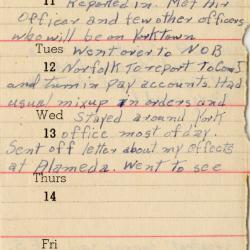 11 Reported in. Met Air
Officer and few other officers
who will be on Yorktown
Tues Went over to NOB
12 Norfolk To report to Com5
and turn in pay accounts. Had
usual mixup in orders and
Wed Stayed around York
13 office most of day.
Sent off letter about my effects
at Alameda. Went to see
Thurs
14
Fri